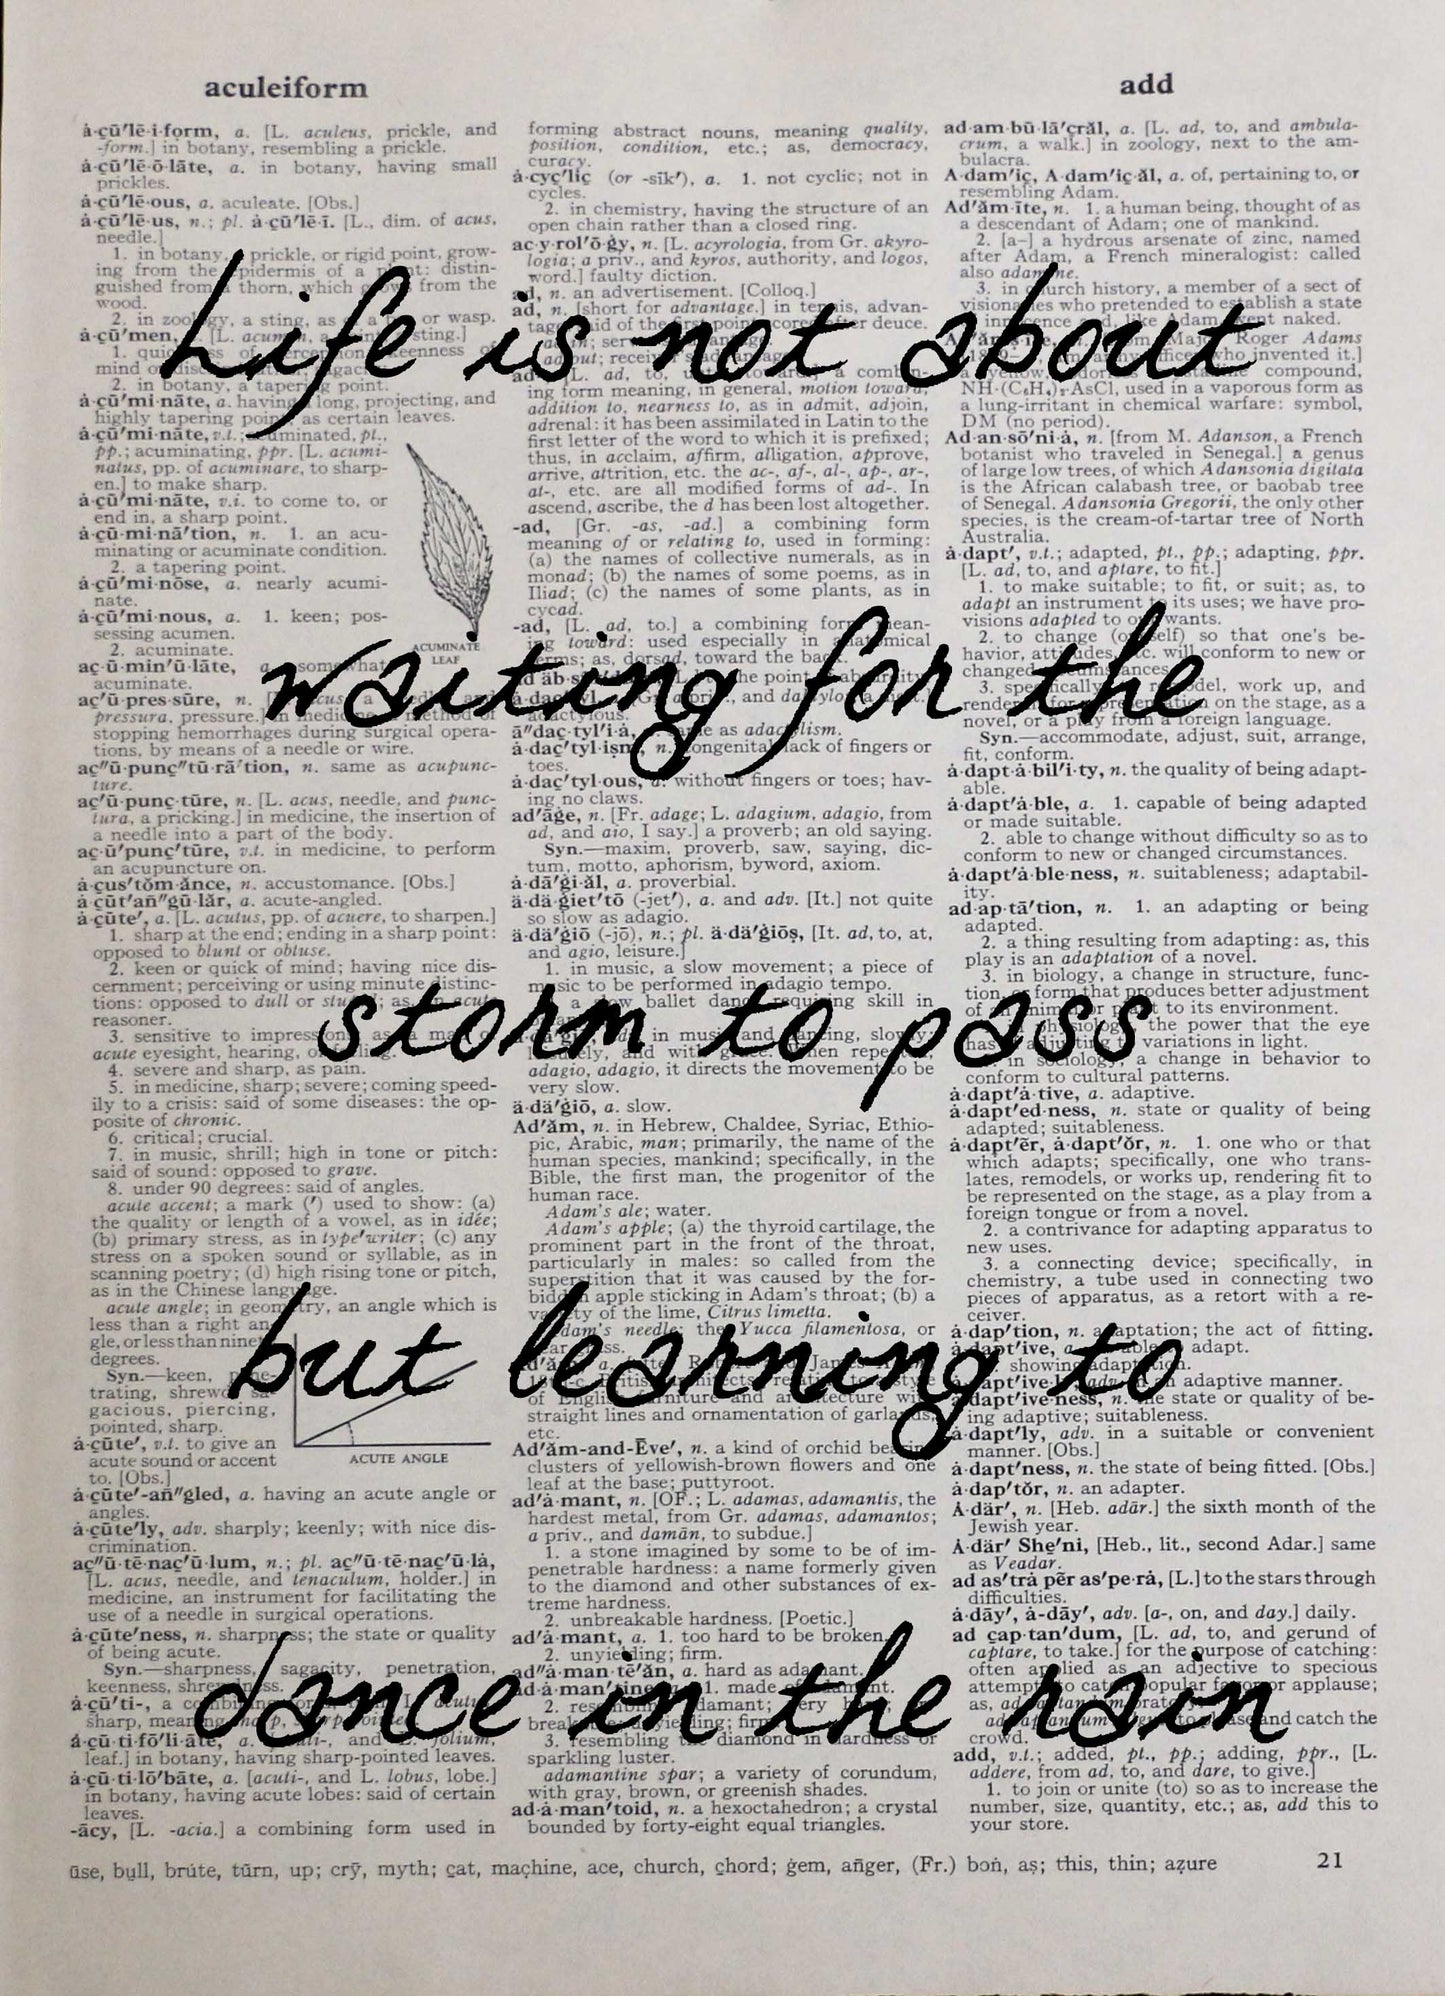 aculeiform
add
Life is not about
waiting for the
storm to pass
but learning to
dance in the rain
ȧ·çū′lē·i·fo̤rm, a. [L. aculeus, prickle, and
-form.] in botany, resembling a prickle.
ȧ·çū′lē·ō·lāte, a. in botany, having small
prickles.
ȧ·çū′lē·ous, a. aculeate. [Obs.]
ȧ·çū′lē·us, n.; pl. ȧ·çū′lē·ī. [L., dim. of acus,
needle.]
1. in botany, prickle, or rigid point, grow-
ing from the epidermis of a: distin-
guished from thorn, which from the
wood.
2. in a sting, as or wasp.
ȧ·çū′men, sting.]
1. of keenness of
mind
2. in botany, a tapering point.
ȧ·çū′mi·nāte, a. having long, projecting, and
highly tapering as certain leaves.
ȧ·çū′mi·nāte, v.t.; acuminated, pt.,
pp.; acuminating, ppr. [L. acumi-
natus, pp. of acuminare, to sharp-
en.] to make sharp.
ȧ·çū′mi·nāte, v.i. to come to, or
end in, a sharp point.
ȧ·çū·mi·nā′tion, n. 1. an acu-
minating or acuminate condition.
2. a tapering point.
ȧ·çū′mi·nōse, a. nearly acumi-
nate.
ȧ·çū′mi·nous, a. 1. keen; pos-
sessing acumen.
2. acuminate.
ACUMINATE
LEAF
aç·ū·min′ū·lāte, a. somewhat
acuminate.
aç′ū·pres·sūre, n.
pressura, pressure.] in method of
stopping hemorrhages during surgical opera-
tions, by means of a needle or wire.
aç″ū·punç″tū·rā′tion, n. same as acupunc-
ture.
aç′ū·punç·tūre, n. [L. acus, needle, and punc-
tura, a pricking.] in medicine, the insertion of
a needle into a part of the body.
aç·ū′punç′tūre, v.t. in medicine, to perform
an acupuncture on.
ȧ·çus′tŏm·ănce, n. accustomance. [Obs.]
ȧ·çūt′añ″gū·lăr, a. acute-angled.
ȧ·çūte′, a. [L. acutus, pp. of acuere, to sharpen.]
1. sharp at the end; ending in a sharp point:
opposed to blunt or obtuse.
2. keen or quick of mind; having nice dis-
cernment; perceiving or using minute distinc-
tions: opposed to dull or as, an acute
reasoner.
3. sensitive to impressions, as
acute eyesight, hearing, or
4. severe and sharp, as pain.
5. in medicine, sharp; severe; coming speed-
ily to a crisis: said of some diseases: the op-
posite of chronic.
6. critical; crucial.
7. in music, shrill; high in tone or pitch:
said of sound: opposed to grave.
8. under 90 degrees: said of angles.
acute accent; a mark (′) used to show: (a)
the quality or length of a vowel, as in idée;
(b) primary stress, as in type′writer; (c) any
stress on a spoken sound or syllable, as in
scanning poetry; (d) high rising tone or pitch,
as in the Chinese language.
acute angle; in geometry, an angle which is
less than a right an-
gle, or less than ninety
degrees.
Syn.—keen,
trating, shrewd,
gacious, piercing,
pointed, sharp.
ACUTE ANGLE
ȧ·çūte′, v.t. to give an
acute sound or accent
to. [Obs.]
ȧ·çūte′-añ″gled, a. having an acute angle or
angles.
ȧ·çūte′ly, adv. sharply; keenly; with nice dis-
crimination.
aç″ū·tē·naç′ū·lum, n.; pl. aç″ū·tē·naç′ū·lȧ,
[L. acus, needle, and tenaculum, holder.] in
medicine, an instrument for facilitating the
use of a needle in surgical operations.
ȧ·çūte′ness, n. sharpness; the state or quality
of being acute.
Syn.—sharpness, sagacity, penetration,
keenness, shrewdness.
ȧ·çū′ti-, a combining
sharp, meaning
ȧ·çū·ti·fō′li·āte, a. and L. folium,
leaf.] in botany, having sharp-pointed leaves.
ȧ·çū·ti·lō′bāte, a. [acuti-, and L. lobus, lobe.]
in botany, having acute lobes: said of certain
leaves.
-ăcy, [L. -acia.] a combining form used in
forming abstract nouns, meaning quality,
position, condition, etc.; as, democracy,
curacy.
ȧ·cyç′liç (or -sīk′), a. 1. not cyclic; not in
cycles.
2. in chemistry, having the structure of an
open chain rather than a closed ring.
ac·y·rol′ō·ġy, n. [L. acyrologia, from Gr. akyro-
logia; a priv., and kyros, authority, and logos,
word.] faulty diction.
ad, n. an advertisement. [Colloq.]
ad, n. [short for advantage.] in tennis, advan-
tage: said of the first point scored after deuce.
ad- [L. ad, to, a combin-
ing form meaning, in general, motion toward,
addition to, nearness to, as in admit, adjoin,
adrenal: it has been assimilated in Latin to the
first letter of the word to which it is prefixed;
thus, in acclaim, affirm, alligation, approve,
arrive, attrition, etc. the ac-, af-, al-, ap-, ar-,
at-, etc. are all modified forms of ad-. In
ascend, ascribe, the d has been lost altogether.
-ad, [Gr. -as, -ad.] a combining form
meaning of or relating to, used in forming:
(a) the names of collective numerals, as in
monad; (b) the names of some poems, as in
Iliad; (c) the names of some plants, as in
cycad.
-ad, [L. ad, to.] a combining form mean-
ing toward: used especially in anatomical
terms; as, dorsad, toward the back.
ā″daç·tyl′i·ȧ, same as adactylism.
ȧ·daç′tyl·ism, n. congenital lack of fingers or
toes.
ȧ·daç′tyl·ous, a. without fingers or toes; hav-
ing no claws.
ad′āġe, n. [Fr. adage; L. adagium, adagio, from
ad, and aio, I say.] a proverb; an old saying.
Syn.—maxim, proverb, saw, saying, dic-
tum, motto, aphorism, byword, axiom.
ȧ·dā′ġi·ăl, a. proverbial.
ä·dä·ġiet′tō (-jet′), a. and adv. [It.] not quite
so slow as adagio.
ä·dä′ġiō (-jō), n.; pl. ä·dä′ġiōş, [It. ad, to, at,
and agio, leisure.]
1. in music, a slow movement; a piece of
music to be performed in adagio tempo.
2. a slow ballet dance requiring skill in
in music and dancing, slowly;
and with when repeated,
adagio, adagio, it directs the movement to be
very slow.
ä·dä′ġiō, a. slow.
Ad′ăm, n. in Hebrew, Chaldee, Syriac, Ethio-
pic, Arabic, man; primarily, the name of the
human species, mankind; specifically, in the
Bible, the first man, the progenitor of the
human race.
Adam's ale; water.
Adam's apple; (a) the thyroid cartilage, the
prominent part in the front of the throat,
particularly in males: so called from the
superstition that it was caused by the for-
bidden apple sticking in Adam's throat; (b) a
variety of the lime, Citrus limetta.
Adam's needle; the Yucca filamentosa, or
of English furniture and architecture with
straight lines and ornamentation of garlands,
etc.
Ad′ăm-and-Ēve′, n. a kind of orchid bearing
clusters of yellowish-brown flowers and one
leaf at the base; puttyroot.
ad′ȧ·mant, n. [OF.; L. adamas, adamantis, the
hardest metal, from Gr. adamas, adamantos;
a priv., and damān, to subdue.]
1. a stone imagined by some to be of im-
penetrable hardness: a name formerly given
to the diamond and other substances of ex-
treme hardness.
2. unbreakable hardness. [Poetic.]
ad′ȧ·mant, a. 1. too hard to be broken.
2. unyielding; firm.
ad″ȧ·man·tē′ăn, a. hard as adamant.
ad·ȧ·man′tine, 1. made of adamant.
2. resembling adamant; very
3. resembling the diamond in hardness or
sparkling luster.
adamantine spar; a variety of corundum,
with gray, brown, or greenish shades.
ad·ȧ·man′toid, n. a hexoctahedron; a crystal
bounded by forty-eight equal triangles.
ad·am·bū·lā′çrăl, a. [L. ad, to, and ambula-
crum, a walk.] in zoology, next to the am-
bulacra.
A·dam′iç, A·dam′iç·ăl, a. of, pertaining to, or
resembling Adam.
Ad′ăm·īte, n. 1. a human being, thought of as
a descendant of Adam; one of mankind.
2. [a–] a hydrous arsenate of zinc, named
after Adam, a French mineralogist: called
also adamine.
3. in church history, a member of a sect of
visionaries who pretended to establish a state
of innocence and, like Adam, went naked.
Roger Adams
who invented it.]
compound,
NH·(C₆H₄)₂·AsCl, used in a vaporous form as
a lung-irritant in chemical warfare: symbol,
DM (no period).
Ad·an·sō′ni·ȧ, n. [from M. Adanson, a French
botanist who traveled in Senegal.] a genus
of large low trees, of which Adansonia digitata
is the African calabash tree, or baobab tree
of Senegal. Adansonia Gregorii, the only other
species, is the cream-of-tartar tree of North
Australia.
ȧ·dapt′, v.t.; adapted, pt., pp.; adapting, ppr.
[L. ad, to, and aptare, to fit.]
1. to make suitable; to fit, or suit; as, to
adapt an instrument to its uses; we have pro-
visions adapted to our wants.
2. to change (oneself) so that one's be-
havior, attitudes, etc. will conform to new or
changed circumstances.
3. specifically, to remodel, work up, and
render fit for presentation on the stage, as a
novel, or a play from a foreign language.
Syn.—accommodate, adjust, suit, arrange,
fit, conform.
ȧ·dapt·ȧ·bil′i·ty, n. the quality of being adapt-
able.
ȧ·dapt′ȧ·ble, a. 1. capable of being adapted
or made suitable.
2. able to change without difficulty so as to
conform to new or changed circumstances.
ȧ·dapt′ȧ·ble·ness, n. suitableness; adaptabil-
ity.
ad·ap·tā′tion, n. 1. an adapting or being
adapted.
2. a thing resulting from adapting: as, this
play is an adaptation of a novel.
3. in biology, a change in structure, func-
tion, or form that produces better adjustment
of an animal or plant to its environment.
the power that the eye
has of adjusting to variations in light.
in sociology, a change in behavior to
conform to cultural patterns.
ȧ·dapt′ȧ·tive, a. adaptive.
ȧ·dapt′ed·ness, n. state or quality of being
adapted; suitableness.
ȧ·dapt′ẽr, ȧ·dapt′ŏr, n. 1. one who or that
which adapts; specifically, one who trans-
lates, remodels, or works up, rendering fit to
be represented on the stage, as a play from a
foreign tongue or from a novel.
2. a contrivance for adapting apparatus to
new uses.
3. a connecting device; specifically, in
chemistry, a tube used in connecting two
pieces of apparatus, as a retort with a re-
ceiver.
ȧ·dap′tion, n. adaptation; the act of fitting.
ȧ·dapt′ive, a. adapt.
showing adaptation.
ȧ·dapt′ive·ly, adv. in an adaptive manner.
ȧ·dapt′ive·ness, n. the state or quality of be-
ing adaptive; suitableness.
ȧ·dapt′ly, adv. in a suitable or convenient
manner. [Obs.]
ȧ·dapt′ness, n. the state of being fitted. [Obs.]
ȧ·dap′tŏr, n. an adapter.
Ȧ·där′, n. [Heb. adār.] the sixth month of the
Jewish year.
Ȧ·där′ She̤′ni, [Heb., lit., second Adar.] same
as Veadar.
ad as′trȧ pẽr as′pe·rȧ, [L.] to the stars through
difficulties.
ȧ·dāy′, ȧ-dāy′, adv. [a-, on, and day.] daily.
ad çap·tan′dum, [L. ad, to, and gerund of
captare, to take.] for the purpose of catching:
often applied as an adjective to specious
attempts to catch popular favor or applause;
as,
to please and catch the
crowd.
add, v.t.; added, pt., pp.; adding, ppr., [L.
addere, from ad, to, and dare, to give.]
1. to join or unite (to) so as to increase the
number, size, quantity, etc.; as, add this to
your store.
ūse, bu̟ll, brṳte, tũrn, up; crȳ, myth; çat, maçhine, ace, church, çhord; ġem, añger, (Fr.) boṅ, aş; this, thin; azure
21